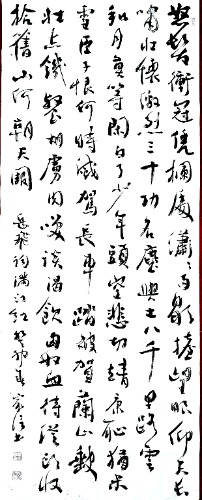 怒髮衝冠憑欄處瀟瀟雨歇擡望眼仰天長
嘯壯懷激烈三十功名塵與土八千里路雲
和月莫等閑白了少年頭空悲切靖康恥猶未
雪臣子恨何時滅駕長車踏破賀蘭山缺
壯志饑餐胡虜肉笑談渴飲匈奴血待從頭收
拾舊山河朝天闕
岳飛詞滿江紅 癸卯春 書